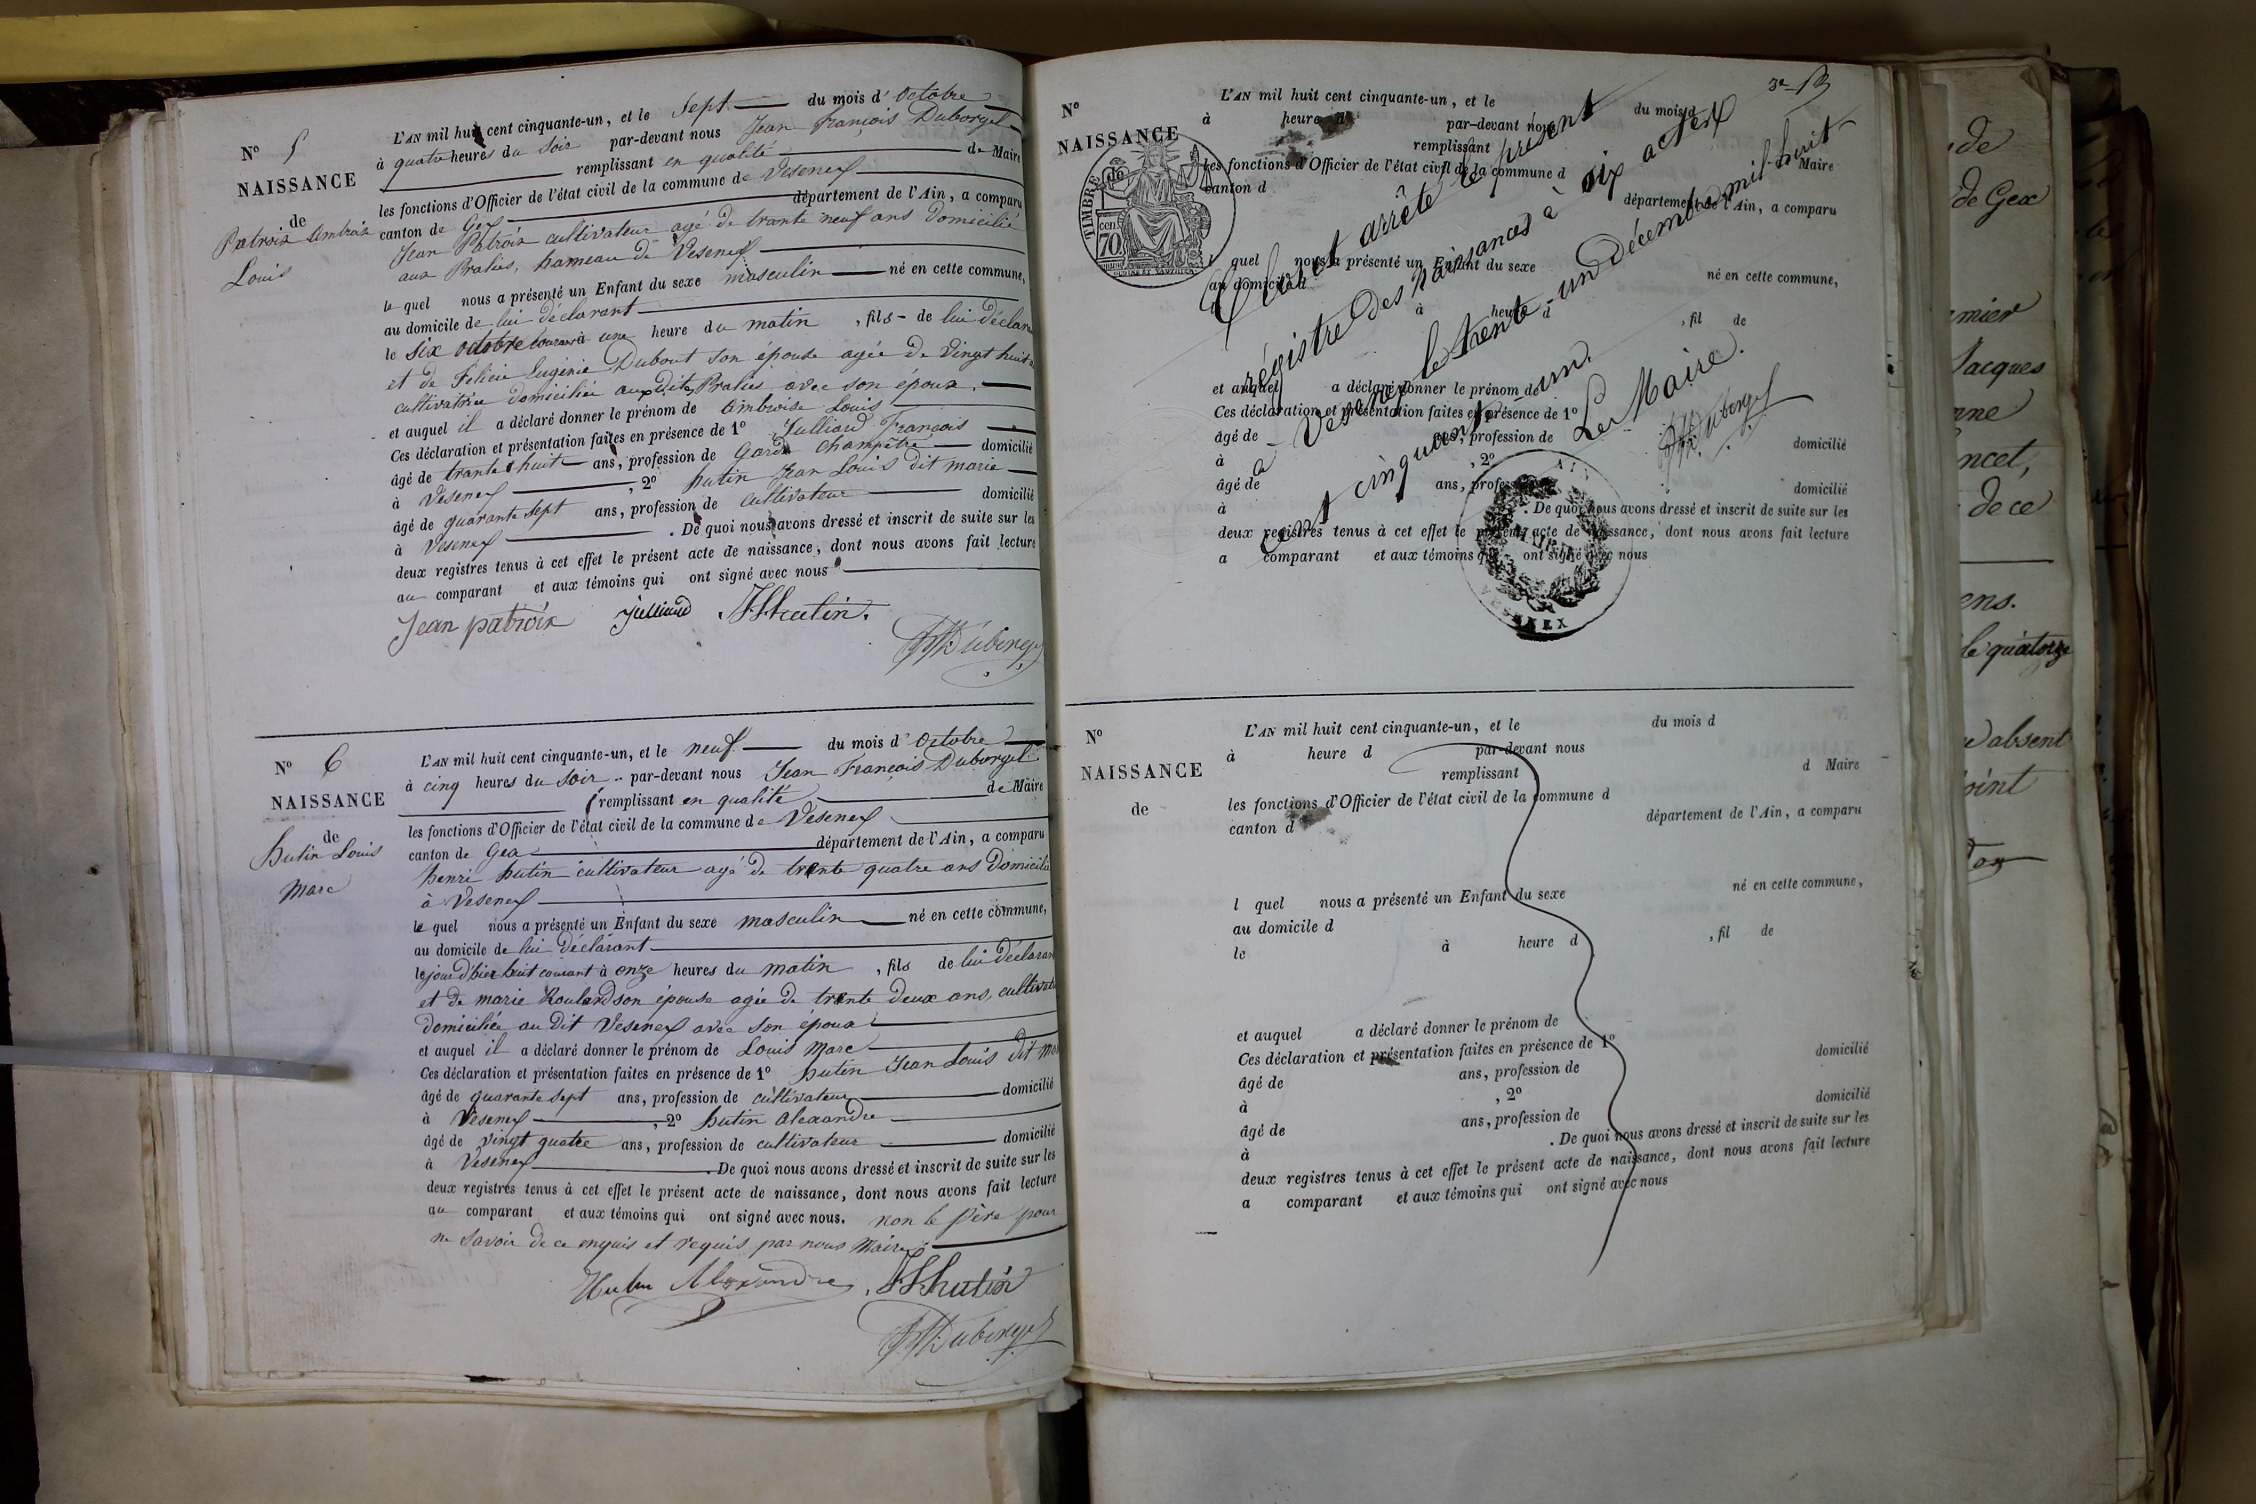 N° 5
NAISSANCE
de
Patroix Ambroise
Louis
L'AN mil huit cent cinquante-un, et le sept du mois d'Octobre
à quatre heures du Soir par-devant nous Jean François Duborgel
remplissant en qualité de Maire
les fonctions d'Officier de l'état civil de la commune de Vesenex
canton de Gex département de l'Ain, a comparu
Jean Patroix cultivateur agé de trante neuf ans Domicilié
aux Pralies, hameau de Vesenex
le quel nous a présenté un Enfant du sexe masculin né en cette commune,
au domicile de lui déclarant
le six octobre courant à une heure du matin, fils de lui déclarant
et de Felicie Eugénie Dubout son épouse agée de Vingt huit
cultivatrice domiciliée aux dits Pralies avec son époux.
et auquel il a déclaré donner le prénom de Ambroise Louis
Ces déclaration et présentation faites en présence de 1° Julliard François
âgé de trante huit ans, profession de Garde Champêtre domicilié
à Vesenex, 2° hutin Jean Louis dit marie
âgé de quarante sept ans, profession de cultivateur domicilié
à Vesenex. De quoi nous avons dressé et inscrit de suite sur les
deux registres tenus à cet effet le présent acte de naissance, dont nous avons fait lecture
au comparant et aux témoins qui ont signé avec nous
Jean patroix Julliard JLhutin.
Duborgel
N° 6
NAISSANCE
de
hutin Louis
Marc
L'AN mil huit cent cinquante-un, et le neuf du mois d'Octobre
à cinq heures du Soir par-devant nous Jean François Duborgel
remplissant en qualité de Maire
les fonctions d'Officier de l'état civil de la commune de Vesenex
canton de Gex département de l'Ain, a comparu
henri hutin cultivateur agé de trente quatre ans Domicilié
à Vesenex
le quel nous a présenté un Enfant du sexe masculin né en cette commune,
au domicile de lui déclarant
le jour d'hier huit courant à onze heures du matin, fils de lui déclarant
et de marie Roulard son épouse agée de trente deux ans,
domiciliée au dit Vesenex avec son époux
et auquel il a déclaré donner le prénom de Louis Marc
Ces déclaration et présentation faites en présence de 1° hutin Jean Louis dit
âgé de quarante sept ans, profession de cultivateur domicilié
à Vesenex, 2° hutin Alexandre
âgé de vingt quatre ans, profession de cultivateur domicilié
à Vesenex. De quoi nous avons dressé et inscrit de suite sur les
deux registres tenus à cet effet le présent acte de naissance, dont nous avons fait lecture
au comparant et aux témoins qui ont signé avec nous. non le père pour
ne savoir de ce enquis et requis par nous Maire
Hutin Alexandre, JLhutin
Duborgel
N°
NAISSANCE
TIMBRE
70
L'AN mil huit cent cinquante-un, et le du mois d
à heure d par-devant nous
remplissant
Maire
les fonctions d'Officier de l'état civil de la commune d
canton d département de l'Ain, a comparu
quel nous a présenté un Enfant du sexe né en cette commune,
au domicile d
à heure d, fil de
et auquel a déclaré donner le prénom de
Ces déclaration et présentation faites en présence de 1°
âgé de ans, profession de domicilié
à, 2°
âgé de ans, profession domicilié
à. De quoi nous avons dressé et inscrit de suite sur les
deux registres tenus à cet effet le présent acte de naissance, dont nous avons fait lecture
a comparant et aux témoins qui ont signé avec nous
Clos et arrêté le présent
régistre des naissances à six actes
à Vesenex le trente-un décembre mil huit
cent cinquante-un.
Le Maire.
Duborgel
MAIRIE
VESENEX
N°
NAISSANCE
de
L'AN mil huit cent cinquante-un, et le du mois d
à heure d par-devant nous
remplissant d Maire
les fonctions d'Officier de l'état civil de la commune d
canton d département de l'Ain, a comparu
l quel nous a présenté un Enfant du sexe né en cette commune,
au domicile d
le à heure d, fil de
et auquel a déclaré donner le prénom de
Ces déclaration et présentation faites en présence de 1°
âgé de ans, profession de domicilié
à, 2°
âgé de ans, profession de domicilié
à. De quoi nous avons dressé et inscrit de suite sur les
deux registres tenus à cet effet le présent acte de naissance, dont nous avons fait lecture
a comparant et aux témoins qui ont signé avec nous
de
de Gex
Jacques
de ce
le quatorze
absent